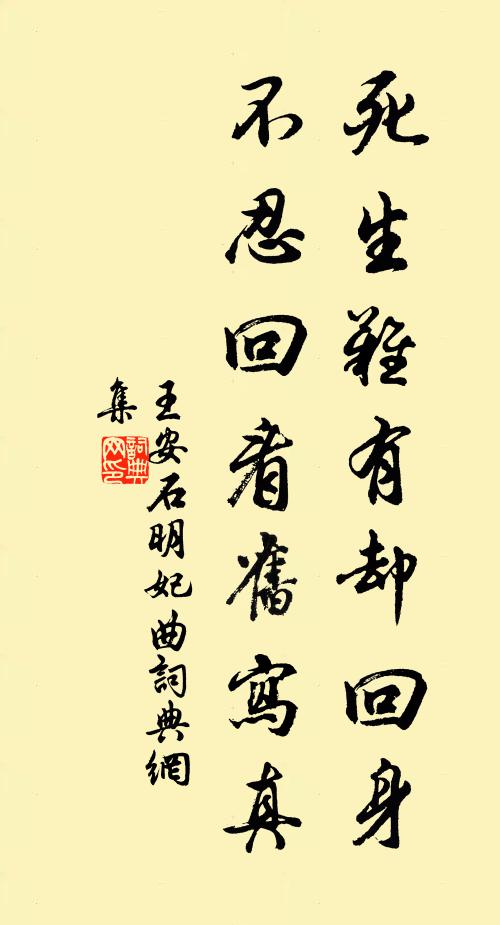 死生難有却回身
不忍回看舊寫真
王安石明妃曲詞典網
集
詞典網印